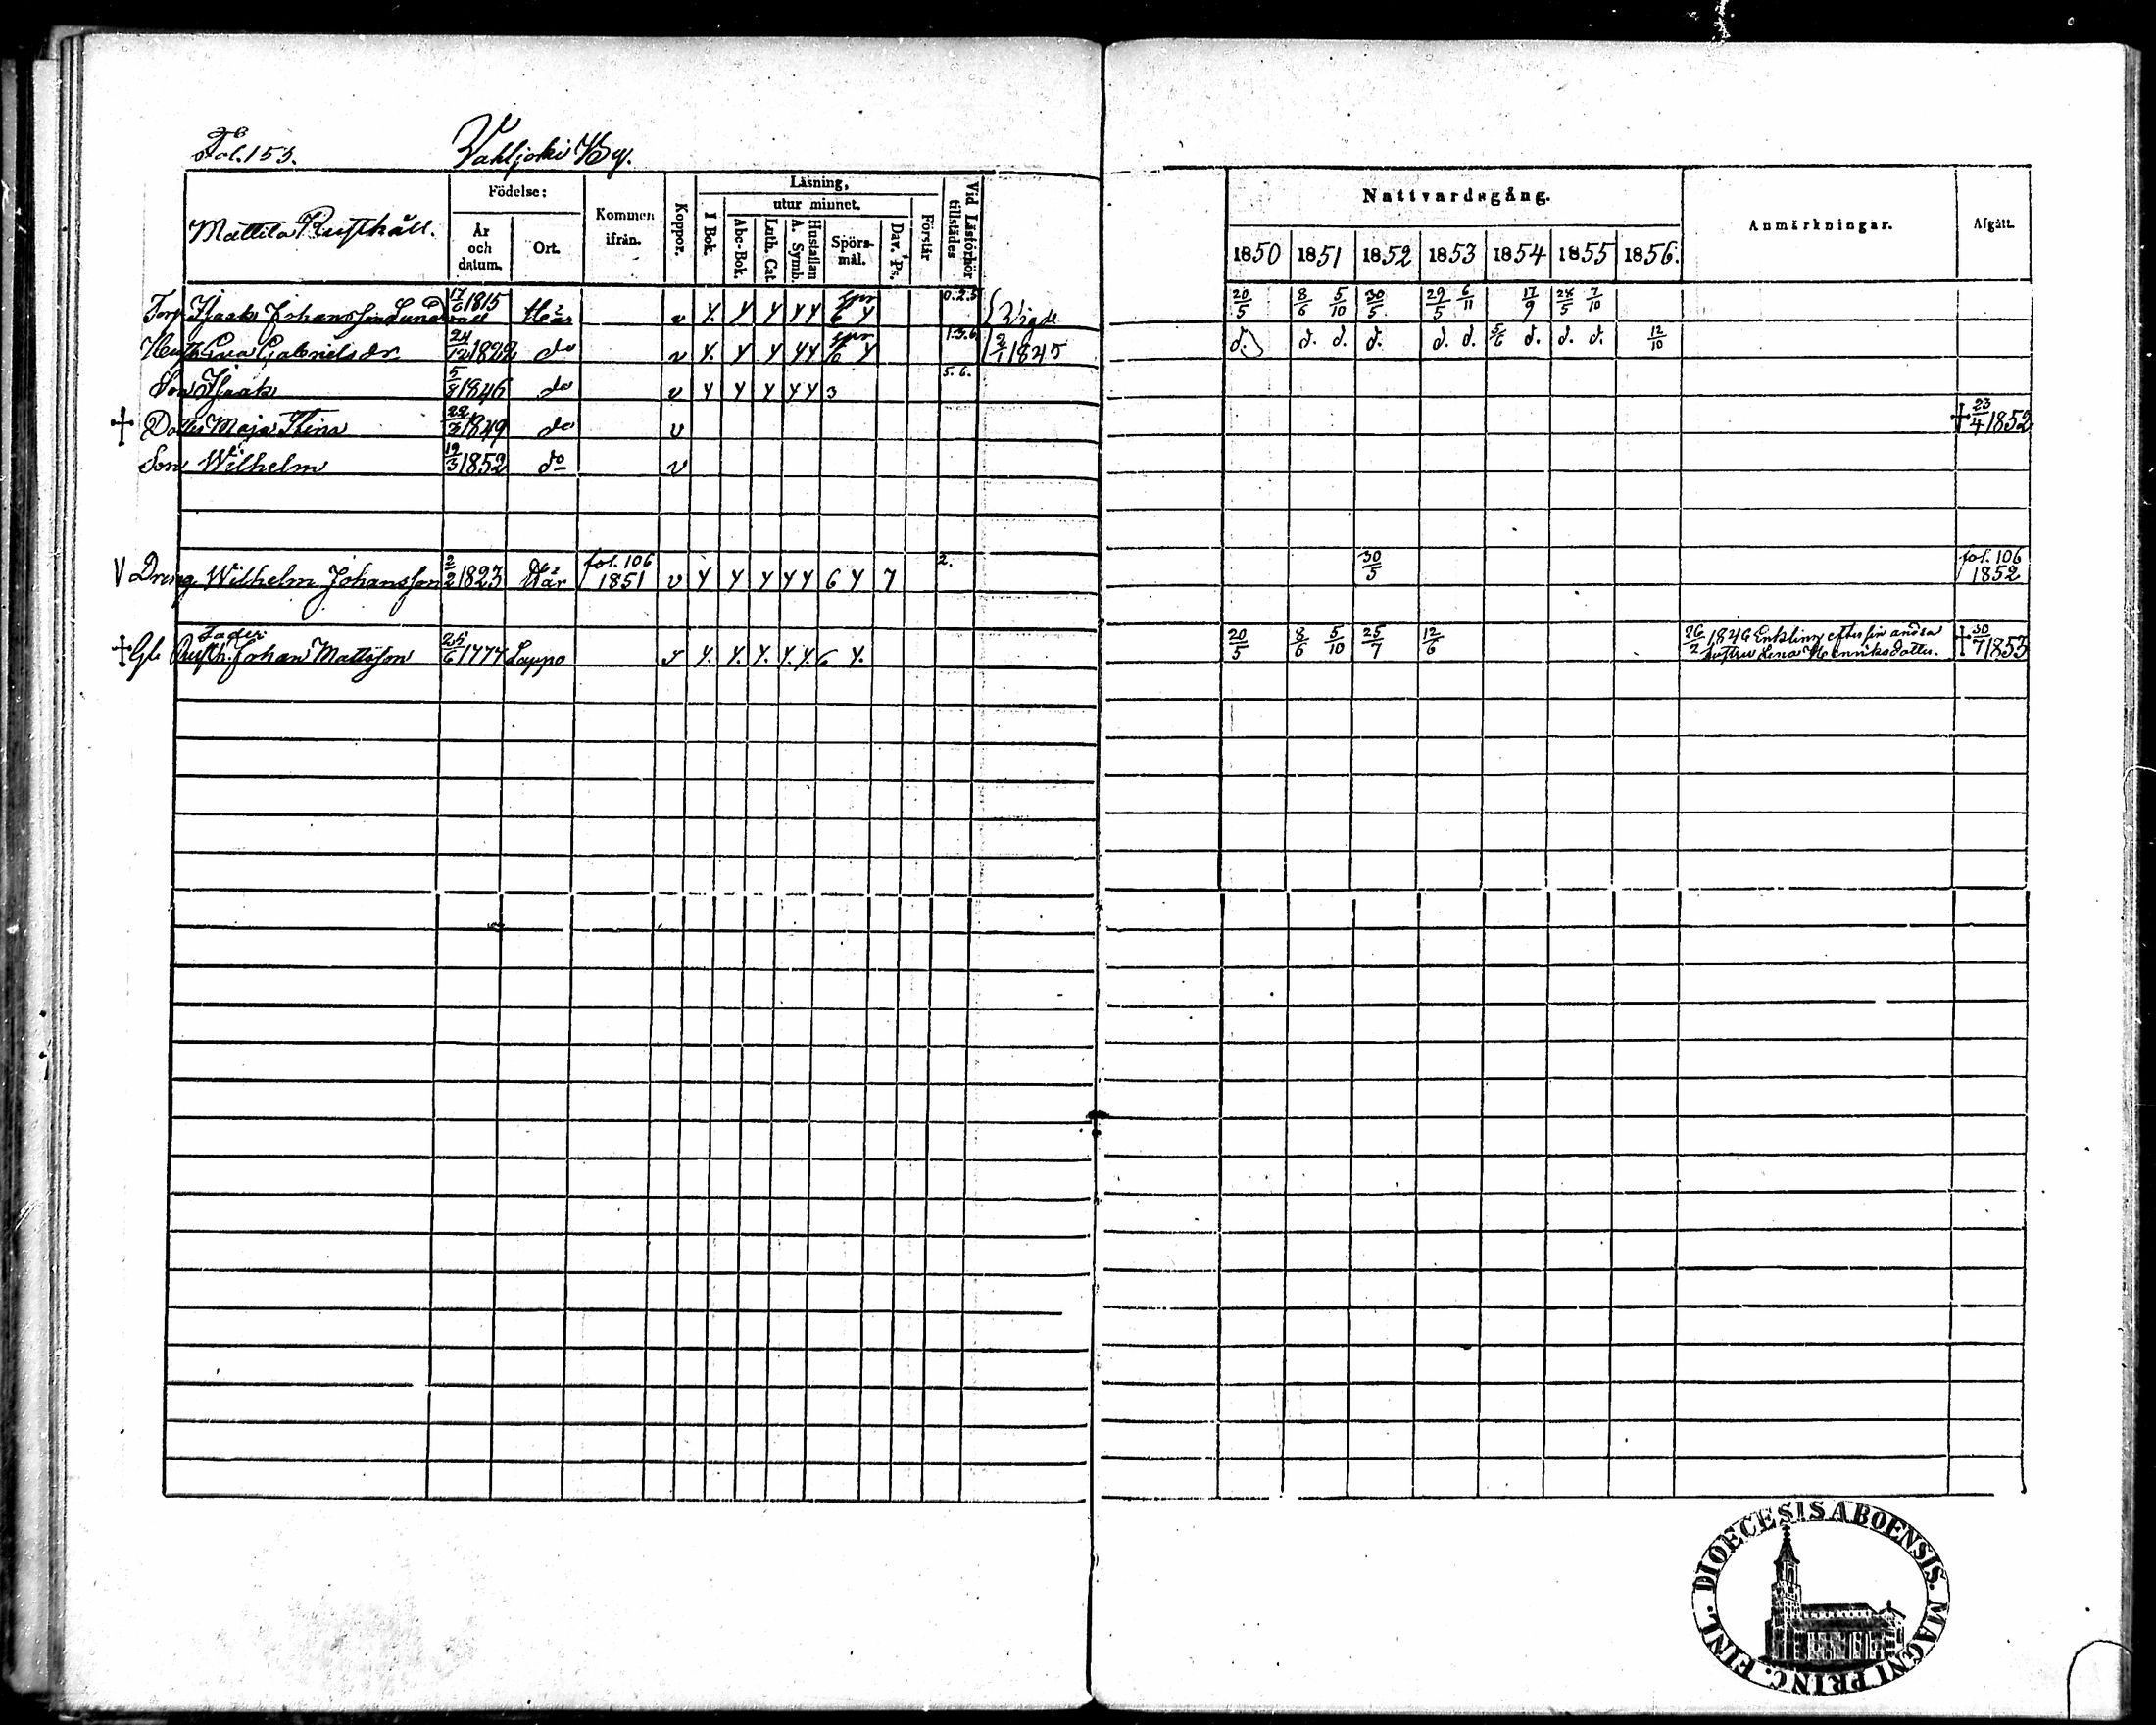 Fol. 153. Vahljoki By.
Mattila Rusthåll.
Födelse:
År och datum.
Ort.
Kommen ifrån.
Koppor.
Läsning,
utur minnet.
I Bok.
Abc-Bok.
Luth. Cat.
Hustaflan A. Symb.
Spörs-mål.
Dav. Ps.
Förstår
Vid Läsförhör tillstädes
Nattvardsgång.
1850 1851 1852 1853 1854 1855 1856.
Anmärkningar.
Afgått.
Torp. Isaak Johansson 17/6 1815 Här v 0.2.5 Vigde 20/5 8/6 5/10 30/5 29/5 6/11 17/9 28/5 7/10
Hust. Eva Gabrielsdr. 24/12 1822 do v 1.3.6. 2/1 1845 d. d. d. d. d. d. 5/6 d. d. d. 12/10
Son Isaak 5/8 1846 do v 3 5.6.
† Dotter Maja Stina 22/2 1849 do v † 23/4 1852
Son Wilhelm 19/3 1852 do v
V Dreng Wilhelm Johansson 2/2 1823 Här fol. 106 1851 v 6 7 2. 30/5 fol. 106 1852
Fader
† Gle Rusth. Johan Mattsson 25/6 1777 Lappo 6 20/5 8/6 5/10 25/7 12/6 26/2 1846 Enkling efter sin andra † 30/7 1853
hustru Lena Henriksdotter.
DIOECESIS ABOENSIS. MAGNI PRINC. FINL.